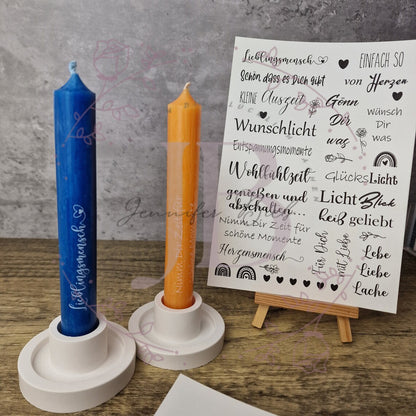 Lieblingsmensch
EINFACH SO
Schön, dass es Dich gibt
von Herzen
KLEINE Auszeit
Gönn
Dir
was
Wünsch
Dir
was
Wunschlicht
Entspannungsmomente
Wohlfühlzeit
Glücks Licht
genießen und
abschalten...
Licht Blick
heiß geliebt
Nimm Dir Zeit für
schöne Momente
Für Dich
mit Liebe
Herzensmensch
Lebe
Liebe
Lache
Lieblingsmensch
Nimm Dir Zeit für
Jennifer